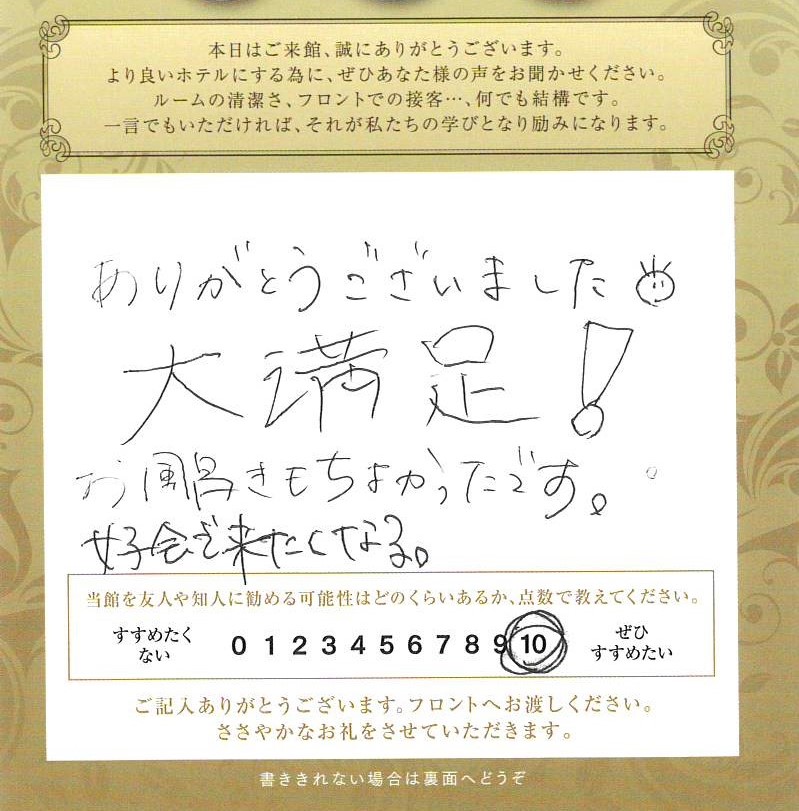 本日はご来館、誠にありがとうございます。
より良いホテルにする為に、ぜひあなた様の声をお聞かせください。
ルームの清潔さ、フロントでの接客…、何でも結構です。
一言でもいただければ、それが私たちの学びとなり励みになります。
ありがとうございました
大満足!
お風呂きもちよかったです。
女子会で来たくなる。
当館を友人や知人に勧める可能性はどのくらいあるか、点数で教えてください。
すすめたくない 0 1 2 3 4 5 6 7 8 9 10 ぜひすすめたい
ご記入ありがとうございます。フロントへお渡しください。
ささやかなお礼をさせていただきます。
書ききれない場合は裏面へどうぞ